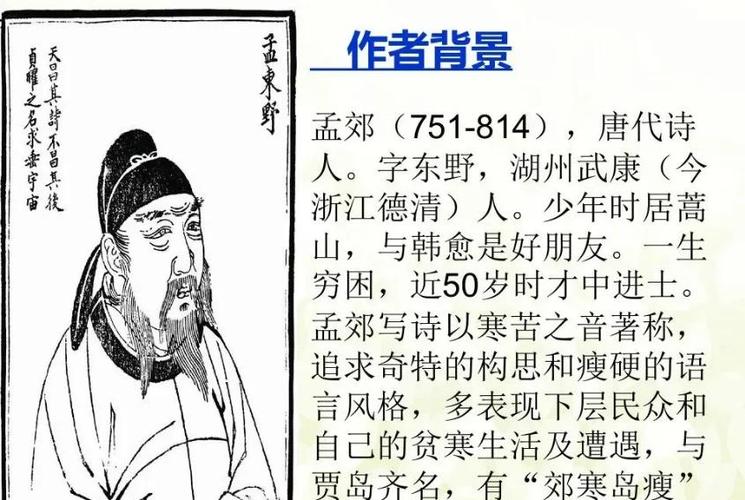 孟東野
天曰其詩不昌其後
貞曜之名求垂宇宙
作者背景
孟郊（751-814），唐代诗
人。字东野，湖州武康（今
浙江德清）人。少年时居蒿
山，与韩愈是好朋友。一生
穷困，近50岁时才中进士。
孟郊写诗以寒苦之音著称，
追求奇特的构思和瘦硬的语
言风格，多表现下层民众和
自己的贫寒生活及遭遇，与
贾岛齐名，有“郊寒岛瘦”